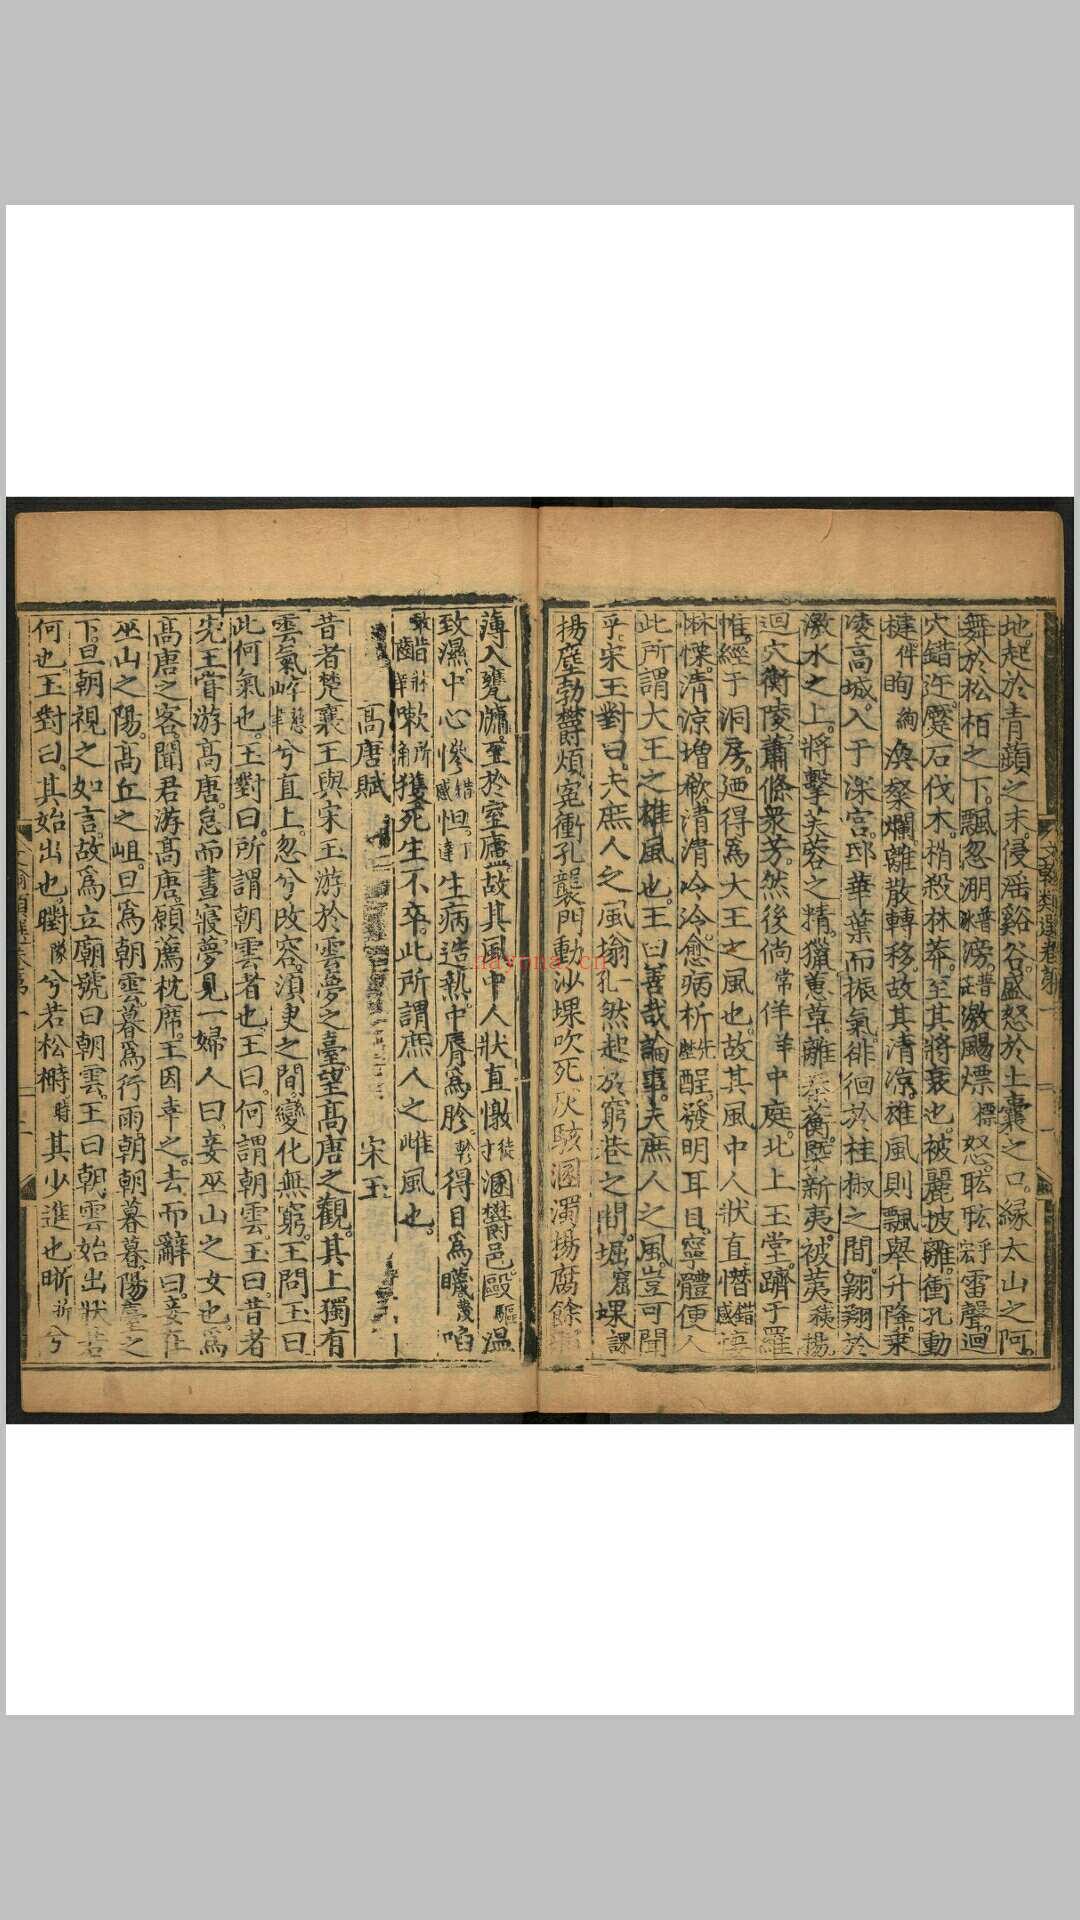 地起於青蘋之末侵淫谿谷盛怒於土囊之口緣太山之阿
舞於松柏之下飄忽淜滂激颺熛怒耾耾雷聲迴
穴錯迕蹷石伐木梢殺林莽至其將衰也被麗披離衝孔動
楗眴渙粲爛離散轉移故其清涼雄風則飄舉升降乘
凌高城入于深宮邸華葉而振氣徘徊於桂椒之間翱翔於
激水之上將擊芙蓉之精獵蕙草離秦蘅槩新夷被荑揚
迴穴衡陵蕭條衆芳然後倘常佯羊中庭北上玉堂躋于羅
惟經于洞房廼得爲大王之風也故其風中人狀直憯
惏慄清涼增欷清清冷冷愈病析酲發明耳目寧體便人
此所謂大王之雄風也王曰善哉論事夫庶人之風豈可聞
乎宋玉對曰夫庶人之風塕然起於窮巷之間堀窟堁課
揚塵勃鬱煩冤衝孔襲門動沙堁吹死灰駭溷濁揚腐餘
薄入甕牖至於室廬故其風中人狀直憞溷鬱邑毆驅溫
致濕中心慘怛生病造熱中脣爲胗得目爲矇
嗽獲死生不卒此所謂庶人之雌風也
高唐賦 宋玉
昔者楚襄王與宋玉游於雲夢之臺望高唐之觀其上獨有
雲氣崪兮直上忽兮改容須臾之間變化無窮王問玉曰
此何氣也玉對曰所謂朝雲者也王曰何謂朝雲玉曰昔者
先王嘗游高唐怠而晝寢夢見一婦人曰妾巫山之女也爲
高唐之客聞君游高唐願薦枕席王因幸之去而辭曰妾在
巫山之陽高丘之岨旦爲朝雲暮爲行雨朝朝暮暮陽臺之
下旦朝視之如言故爲立廟號曰朝雲王曰朝雲始出狀若
何也玉對曰其始出也㬣兮若松榯時其少進也晰兮
nayona.cn